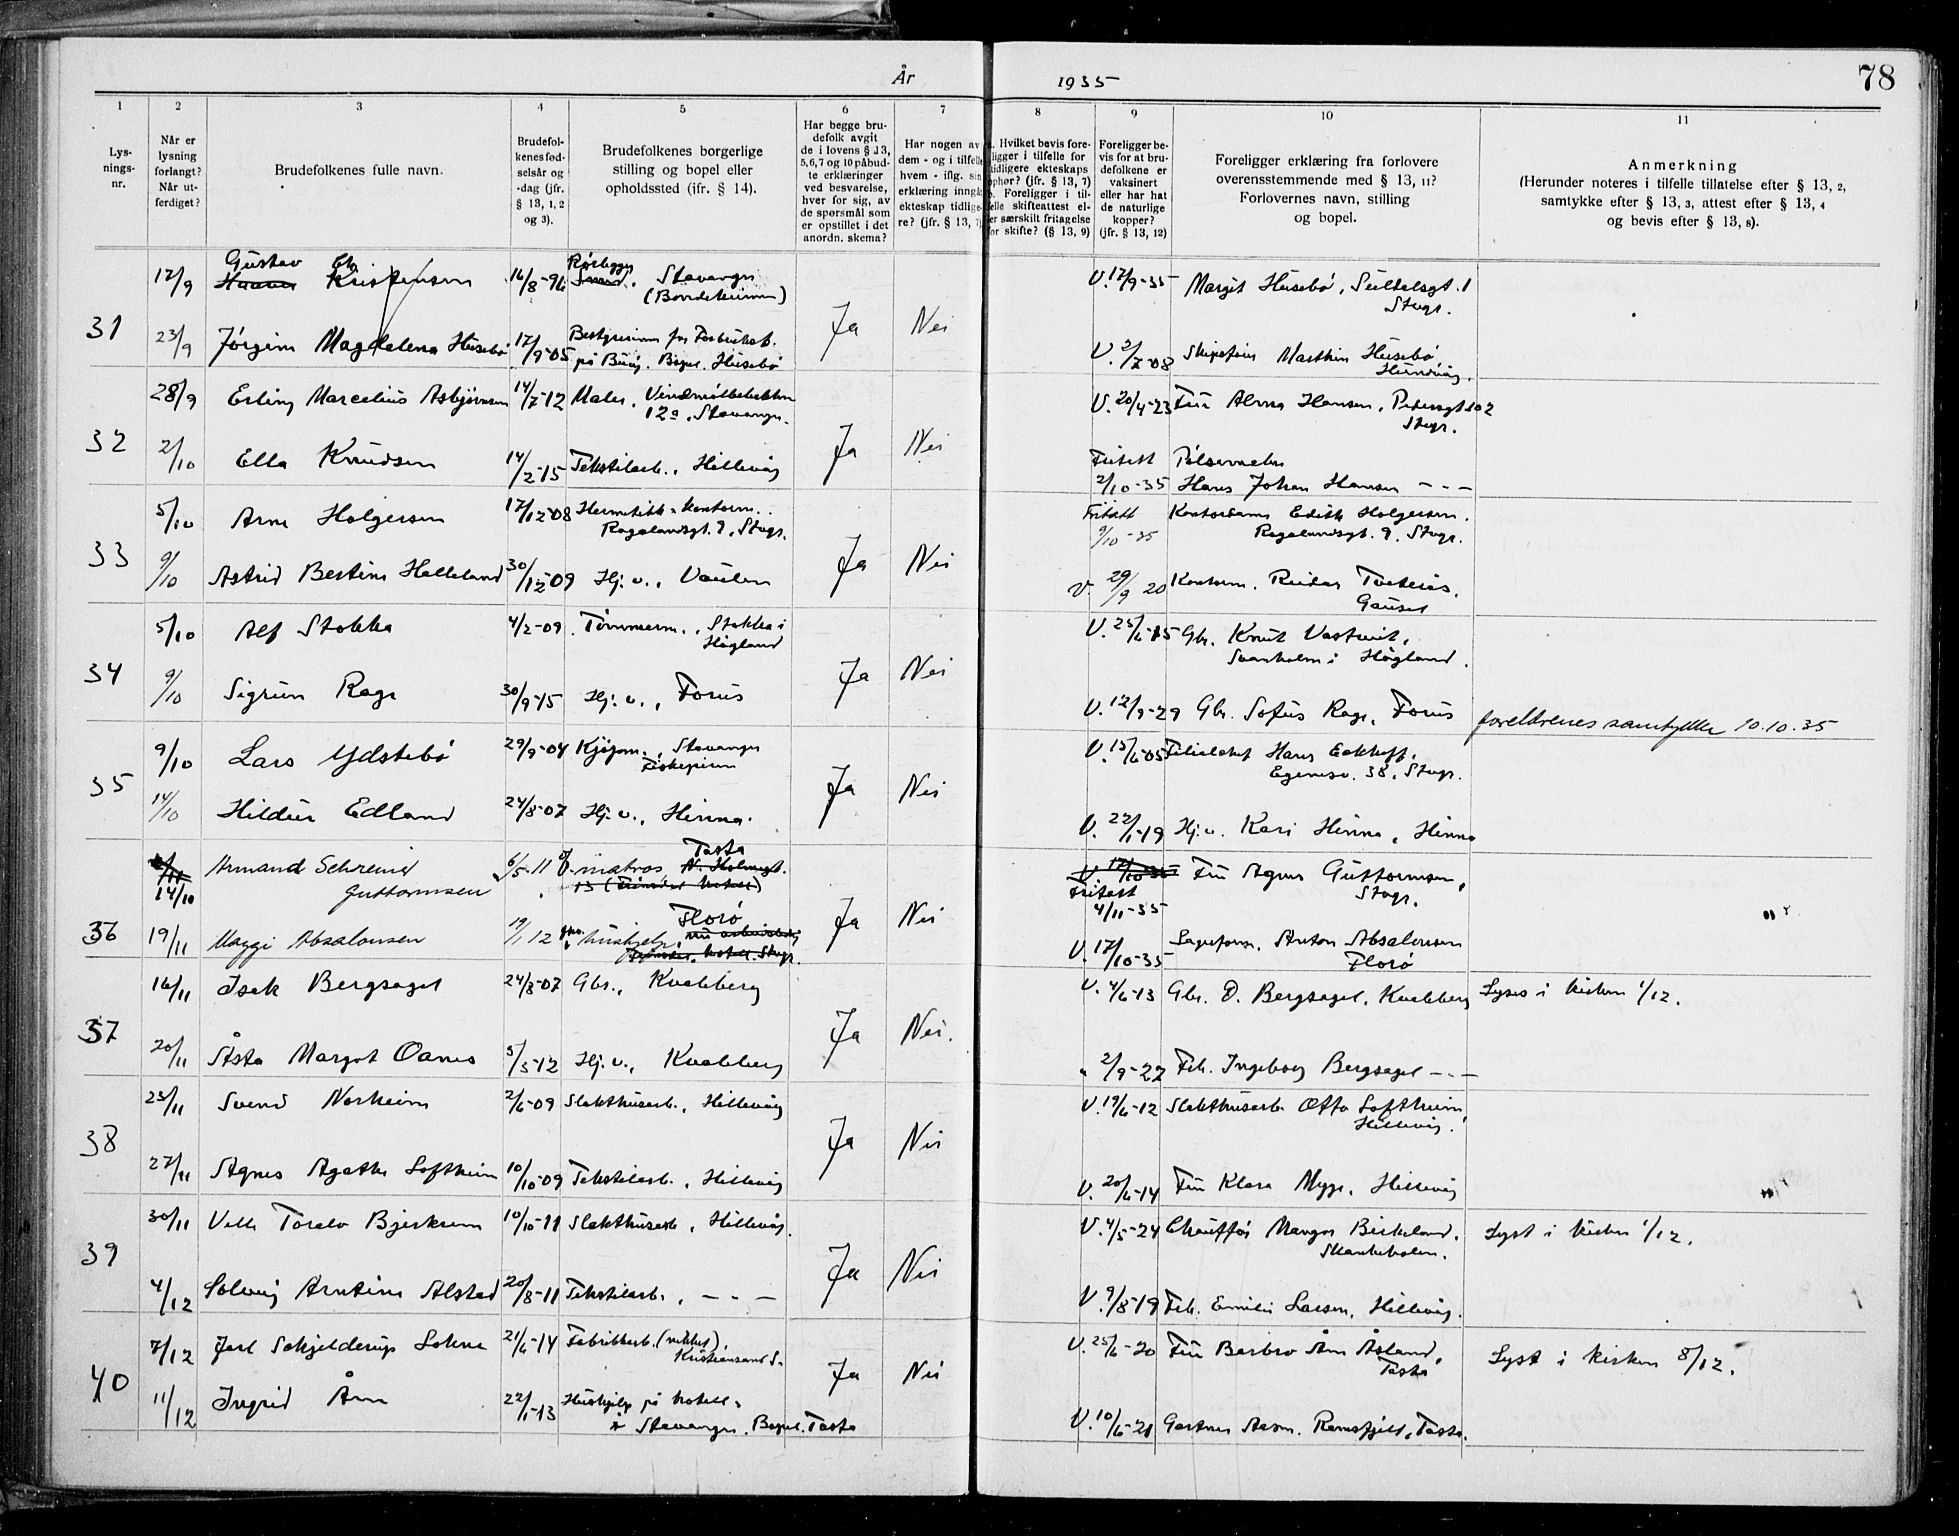 År 1935
78
1 2 3 4 5 6 7 8 9 10 11
Lysningsnr.
Når er lysning forlangt? Når utferdiget?
Brudefolkenes fulle navn.
Brudefolkenes fødselsår og -dag (jfr. § 13, 1, 2 og 3).
Brudefolkenes borgerlige stilling og bopel eller opholdssted (jfr. § 14).
Har begge brudefolk avgit de i lovens § 13, 5, 6, 7 og 10 påbudte erklæringer ved besvarelse, hver for sig, av de spørsmål som er opstillet i det anordn. skema?
Har nogen av dem - og i tilfelle hvem - iflg. sin erklæring inngått ekteskap tidligere? (jfr. § 13, 7)
a. Hvilket bevis foreligger i tilfelle for tidligere ekteskaps ophør? (jfr. § 13, 7) b. Foreligger i tilfelle skifteattest eller særskilt fritagelse for skifte? (§ 13, 9)
Foreligger bevis for at brudefolkene er vaksinert eller har hat de naturlige kopper? (jfr. § 13, 12)
Foreligger erklæring fra forlovere overensstemmende med § 13, 11? Forlovernes navn, stilling og bopel.
Anmerkning
(Herunder noteres i tilfelle tillatelse efter § 13, 2, samtykke efter § 13, 3, attest efter § 13, 4 og bevis efter § 13, 8).
Gustav Chr.
17/9 Kristensen 16/8-96 Rørlegger Stavanger V. 17/9-35 Margit Husebø,
Stvgr.
31 Ja Nei
23/9 Jørgine Magdalena Husebø 17/9-05 Bestyrerinne for Forbruksf. V. 2/7-08 Skipsfører Marthin Husebø
på Buøy. Bopel. Husebø Hundvåg.
28/9 Erling Marcelius Asbjørnsen 14/7-12 Maler, Vindmøllebakken V. 20/4-23 Fru Alma Hansen, Pedersgt. 102
12a, Stavanger. Stvgr.
32 Ja Nei
2/10 Ella Knudsen 14/2-15 Tekstilarb., Hillevåg Fritatt Pølsemaker
2/10-35 Hans Johan Hansen - - -
5/10 Arne Holgersen 17/12-08 Hermetikk- kontorm. Fritatt Kontordame Edith Holgersen.
Rogalandsgt. 9, Stvgr. 9/10-35 Rogalandsgt. 9, Stvgr.
33 Ja Nei
9/10 Astrid Bertine Helleland 30/12-09 Hj. v., Vaulen V. 29/9 20 Kontorm. Reidar Tveterås,
Gausel
5/10 Alf Stokka 4/2-09 Tømmerm., Stokka i V. 25/6-15 Gbr. Knut Vastveit,
Høgland Svanholm i Høgland.
34 Ja Nei
9/10 Sigrun Rage 30/9-15 Hj. v., Forus V. 12/9-29 Gbr. Sofus Rage, Forus foreldrenes samtykke 10.10.35
9/10 Lars Ydstebø 29/9-04 Kjøpm., Stavanger V. 15/6-05 Filialchef Hans Eckhoff,
Fiskepiren Egenesv. 38, Stvgr.
35 Ja Nei
14/10 Hildur Edland 24/8-07 Hj. v., Hinna. V. 22/1-19 Hj. v. Kari Hinna, Hinna
Armand Schreiner 6/5-11 matros Tasta Fru Agnes Guttormsen,
14/10 Guttormsen Fritatt 4/11-35 Stvgr.
36 Ja Nei
19/11 Maggi Absalonsen 19/1 12 hushjelp, Florø V. 17/10-35 Anton Absalonsen
Florø
16/11 Isak Bergsagel 24/8-07 Gbr., Kvaleberg V. 4/6-13 Gbr. O. Bergsagel, Kvaleberg Lyses i kirken 1/12.
37 Ja Nei.
20/11 Åsta Margot Oanes 5/5-12 Hj. v., Kvaleberg " 2/9-27 Frk. Ingeborg Bergsagel - - -
23/11 Svend Norheim 2/6-09 Slakthusarb., Hillevåg V. 19/6-12 Slakthusarb. Otto Loftheim,
Hillevåg.
38 Ja Nei
27/11 Agnes Agathe Loftheim 10/10-09 Tekstilarb., Hillevåg V. 20/6-14 Fru Klara Myge, Hillevåg
30/11 Toralv Bjerkreim 10/10-11 Slakthusarb., Hillevåg. V. 4/5-24 Chauffør Mangor Birkeland, Lyst i kirken 1/12.
39 Ja Nei
4/12 Solveig Arntine Alstad 20/8-11 Tekstilarb., - - - V. 9/8-19 Frk. Emilie Larsen, Hillevåg.
7/12 Jarl Schjelderup Lohne 21/6-14 Fabrikkarb. V. 25/6-20 Fru Barbro Åm Åsland, Lyst i kirken 8/12.
Kristiansand S. Tasta
40 Ja Nei
11/12 Ingrid Åm 22/1-13 Hushjelp på hotell V. 10/6-21 Gartner Aasm. Ramsfjell, Tasta.
i Stavanger. Bopel. Tasta